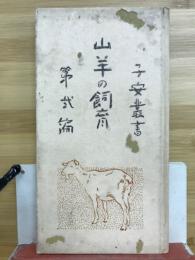 子安叢書
山羊の飼育
第弐編